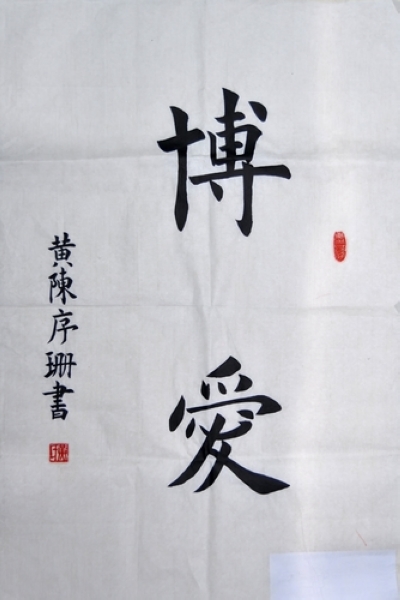 博愛
黄陳序珊書